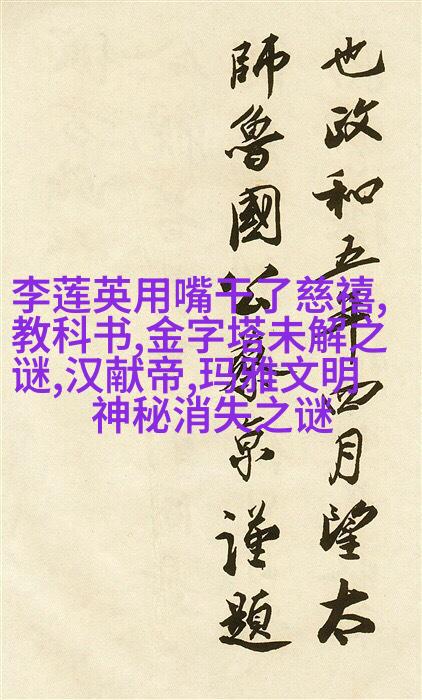 李莲英用嘴干了慈禧,
教科书,金字塔未解之
谜,汉献帝,玛雅文明
神秘消失之谜
也政和五年四月望太
師魯國公蔡京謹題